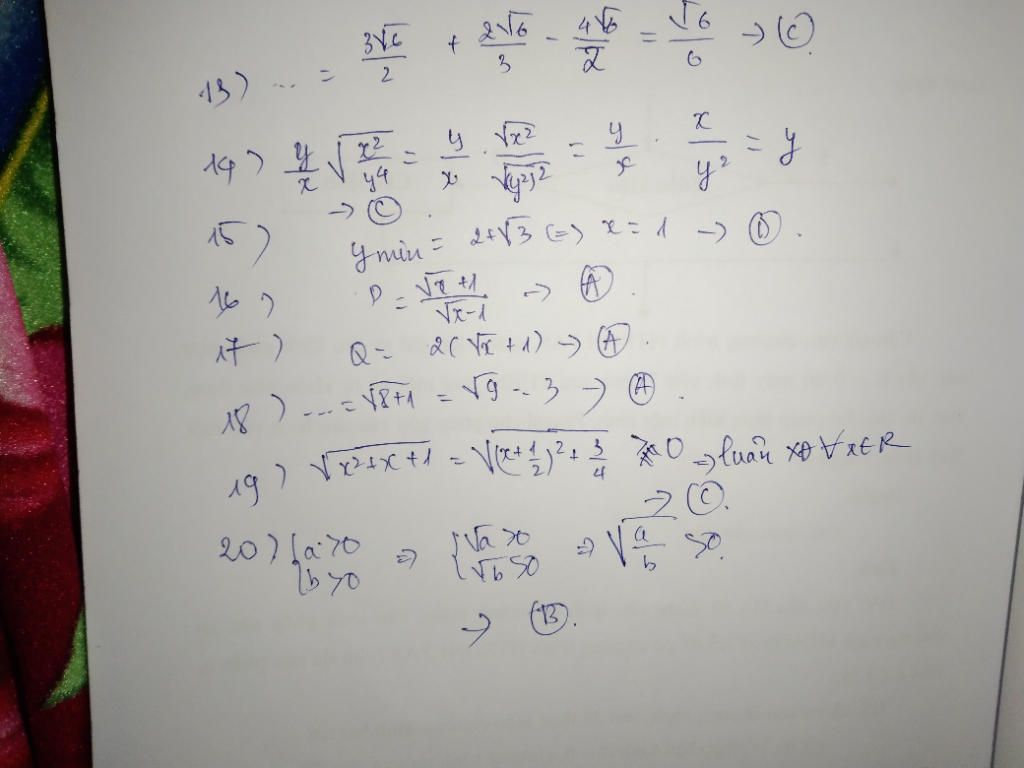 13) ... = 3√6/2 + 2√6/3 - 4√6/2 = √6/6 → Ⓒ.
14) y/x √(x²/y⁴) = y/x · √x²/√(y²)² = y/x · x/y² = y
→ Ⓒ.
15) y min = 2+√3 <=> x = 1 → Ⓓ.
16) P = (√x+1)/(√x-1) → Ⓐ.
17) Q = 2(√x+1) → Ⓐ.
18) ... = √(8+1) = √9 = 3 → Ⓐ.
19) √(x²+x+1) = √((x+1/2)²+3/4) > 0 => luôn XĐ ∀x∈R
→ Ⓒ.
20) {a>0 b>0 => {√a>0 √b>0 => √(a/b) >0.
→ Ⓑ.